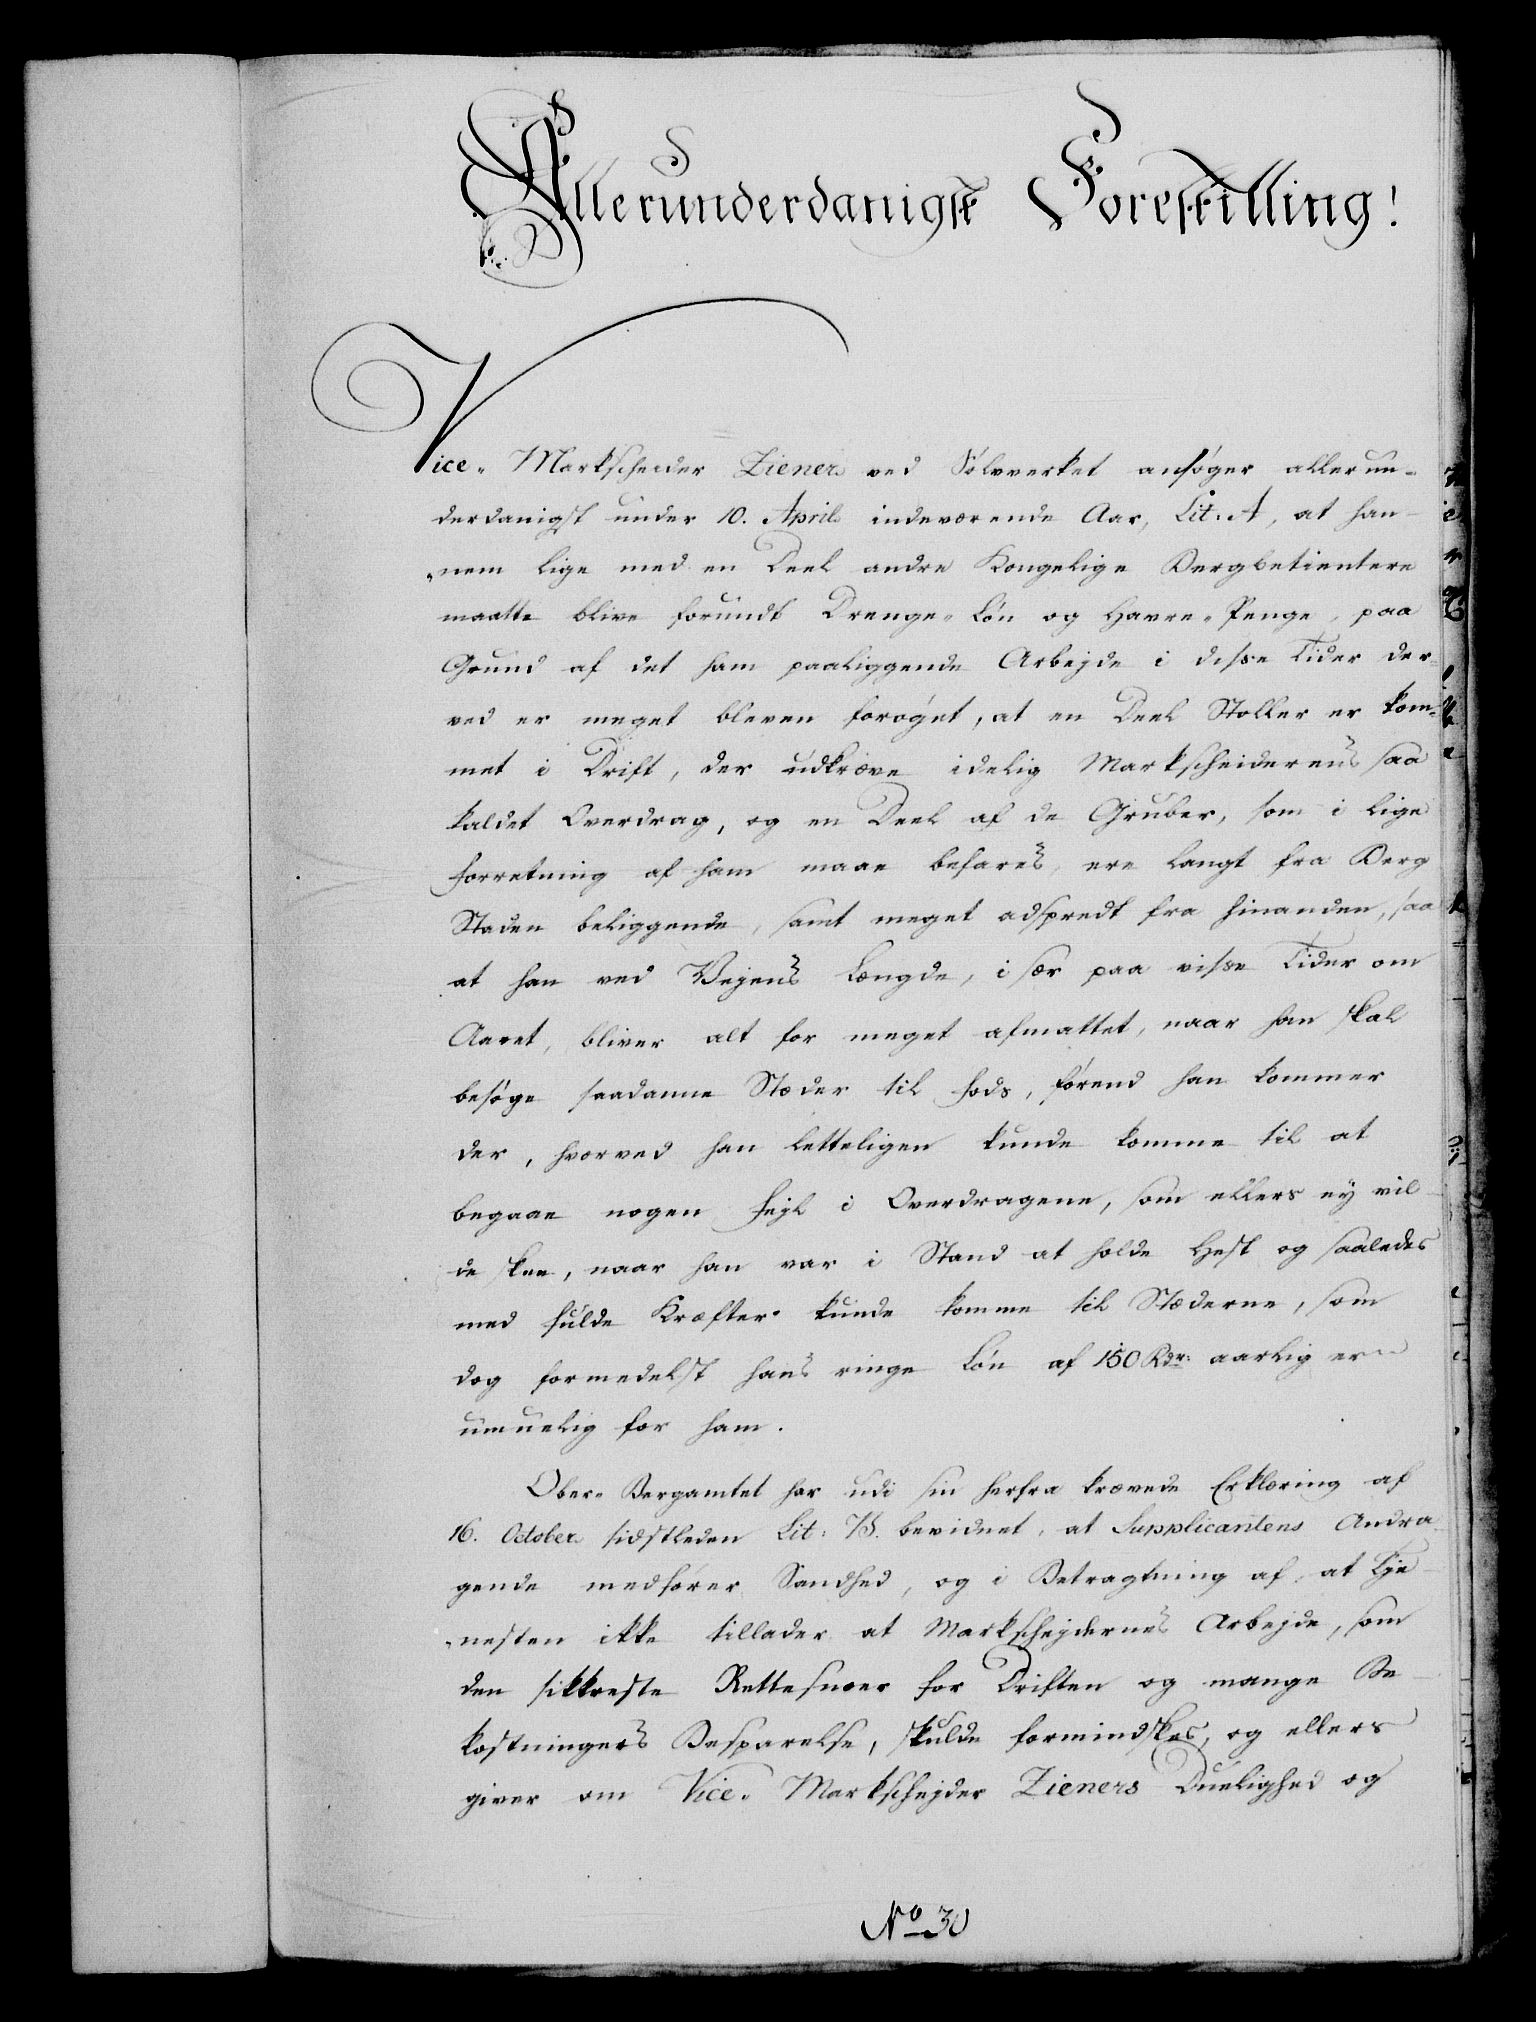 Allerunderdanigst Forestilling!
Vice-Markscheider Ziener ved Sølvverket ansøger allerun-
derdanigst under 10. April indeværende Aar, Lit. A, at han-
nem lige med en Deel andre Kongelige Bergbetientere
maatte blive forundt Drenge-Løn og Havre-Penge, paa
Grund af det ham paaliggende Arbejde i disse Tider der-
ved er meget bleven forøget, at en Deel Stoller er kom-
met i Drift, der udkræve idelig Markscheiderens saa
kaldet Overdrag, og en Deel af de Gruber, som i lige
Forretning af ham maae befares, ere langt fra Berg
Staden beliggende, samt meget adspredt fra hinanden, saa
at han ved Vejens Længde, i sær paa visse Tider om
Aaret, bliver alt for meget afmattet, naar han skal
besøge saadanne Stæder til Fods, førend han kommer
der, hvorved han letteligen kunde komme til at
begaae nogen Fejl i Overdragene, som ellers ey vil-
de skee, naar han var i Stand at holde Hest og saaledes
med fulde Kræfter kunde komme til Stæderne, som
dog formedelst hans ringe Løn af 150 Rdr. aarlig er
umuelig for ham.
Ober-Bergamtet har udi sin herfra krævede Erklæring af
16. October sidstleden Lit. B. bevidnet, at Supplicantens Andra-
gende medfører Sandhed, og i Betragtning af at Tje-
nesten ikke tillader at Markschejdernes Arbejde, som
den sikkreste Rettesnoer for Driften og mange Be-
kostningers Besparelse, skulde formindskes, og ellers
giver om Vice-Markschejder Zieners Duelighed og
No 30